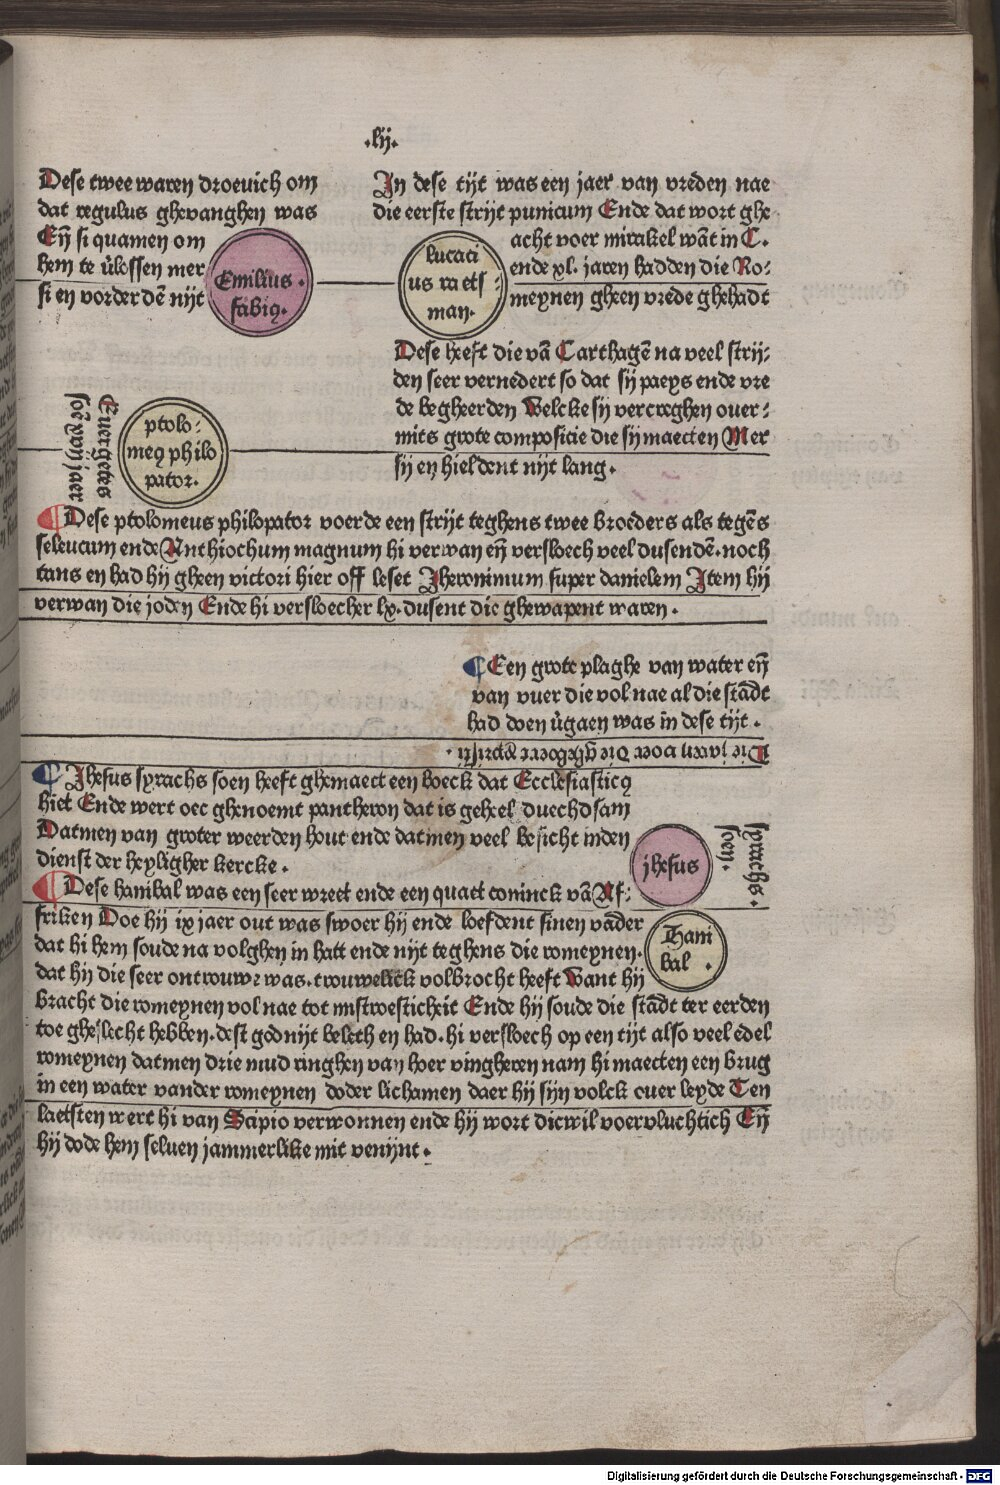 .lij.
Dese twee waren droeuich om
dat regulus ghevanghen was
Eñ si quamen om
hem te v̄lossen mer
si en vorderdē nijt
Emilius.
fabiꝯ.
In dese tijt was een jaer van vreden nae
die eerste strijt punicum Ende dat wort ghe
acht voer mirakel wāt in C.
ende xl. jaren hadden die Ro⸗
meynen gheen vrede ghehadt
lucaci
us raets
man.
Dese heeft die vā Carthagē na veel strij⸗
den seer vernedert so dat sij paeys ende vre
de begheerden Welcke sij vercreghen ouer⸗
mits grote composicie die sij maecten Mer
sij en hieldent nijt lang.
Euergetes
soē xvij jaer
ptolo⸗
meꝯ philo
pator.
¶ Dese ptolomeus philopator voerde een strijt teghens twee broeders als tegēs
seleucum ende Anthiochum magnum hi verwan eñ versloech veel dusendē. noch
tans en had hij gheen victori hier off leset Jheronimum super danielem Item hij
verwan die joden Ende hi versloecher lx. dusent die ghewapent waren.
¶ Een grote plaghe van water eñ
van vuer die vol nae al die stādt
had doen v̄gaen was in dese tijt.
Die jaren voer die gheboerte cristi.
¶ Jhesus syrachs soen heeft ghemaect een boeck dat Ecclesiasticꝯ
hiet Ende wert oec ghenoemt pantheron dat is geheel duechdsam
Datmen van groter weerden hout ende datmen veel besicht inden
dienst der heyligher kercke.
jhesus
syrachs.
soen.
¶ Dese hanibal was een seer wreet ende een quaet coninck vā Af⸗
friken Doe hij ix jaer out was swoer hij ende loefdent sinen vader
dat hi hem soude na volghen in hatt ende nijt teghens die romeynen.
dat hij die seer ontrouwe was. trouwelick volbrocht heeft Want hij
Hani
bal .
bracht die romeynen vol nae tot mistroesticheit Ende hij soude die stādt ter eerden
toe gheslecht hebben. dest god nijt beleth en had. hi versloech op een tijt also veel edel
romeynen datmen drie mud ringhen van hoer vingheren nam hi maecten een brug
in een water vander romeynen doder lichamen daer hij sijn volck ouer leyde Ten
laetsten wert hi van Scipio verwonnen ende hij wort dicwil voervluchtich Eñ
hij dode hem seluen jammerlike mit venijnt.
Digitalisierung gefördert durch die Deutsche Forschungsgemeinschaft - DFG